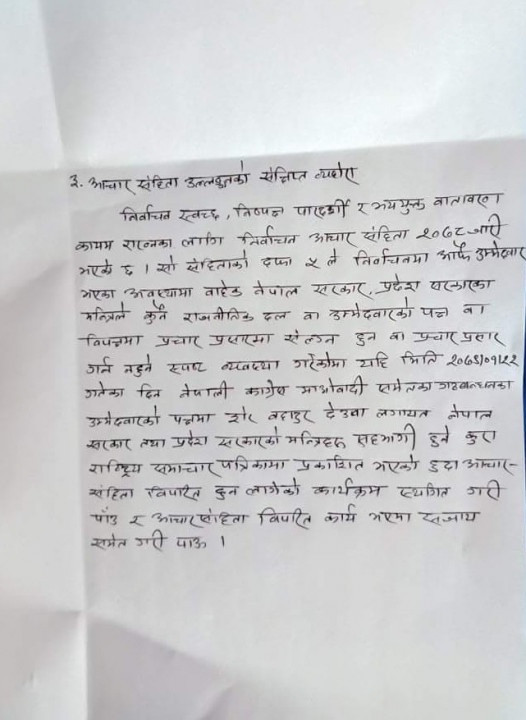 ३. आचार संहिता उल्लङ्घनको संक्षिप्त व्यहोरा
निर्वाचन स्वच्छ, निष्पक्ष पारदर्शी र भयमुक्त वातावरण
कायम राख्नका लागि निर्वाचन आचार संहिता २०७८ जारी
भएको छ । सो संहिताको दफा ५ ले निर्वाचनमा आफै उम्मेदवार
भएका अवस्थामा वाहेक नेपाल सरकार, प्रदेश सरकारका
मन्त्रिले कुनै राजनीतिक दल वा उम्मेदवारको पक्ष वा
विपक्षमा प्रचार प्रसारमा संलग्न हुन वा प्रचार प्रसार
गर्न नहुने स्पष्ट व्यवस्था गरेकोमा यदि मिति २०७९।०१।२२
गतेका दिन नेपाली काग्रेस माओवादी समेतका गठबन्धनका
उम्मेदवारको पक्षमा शेर बहादुर देउवा लगायत नेपाल
सरकार तथा प्रदेश सरकारको मन्त्रिहरु सहभागी हुने कुरा
राष्ट्रिय समाचार पत्रिकामा प्रकाशित भएको हुदा आचार-
संहिता विपरित हुन लागेको कार्यक्रम स्थगित गरी
पाँउ र आचार संहिता विपरित कार्य भएमा सजाय
समेत गरी पाऊ ।